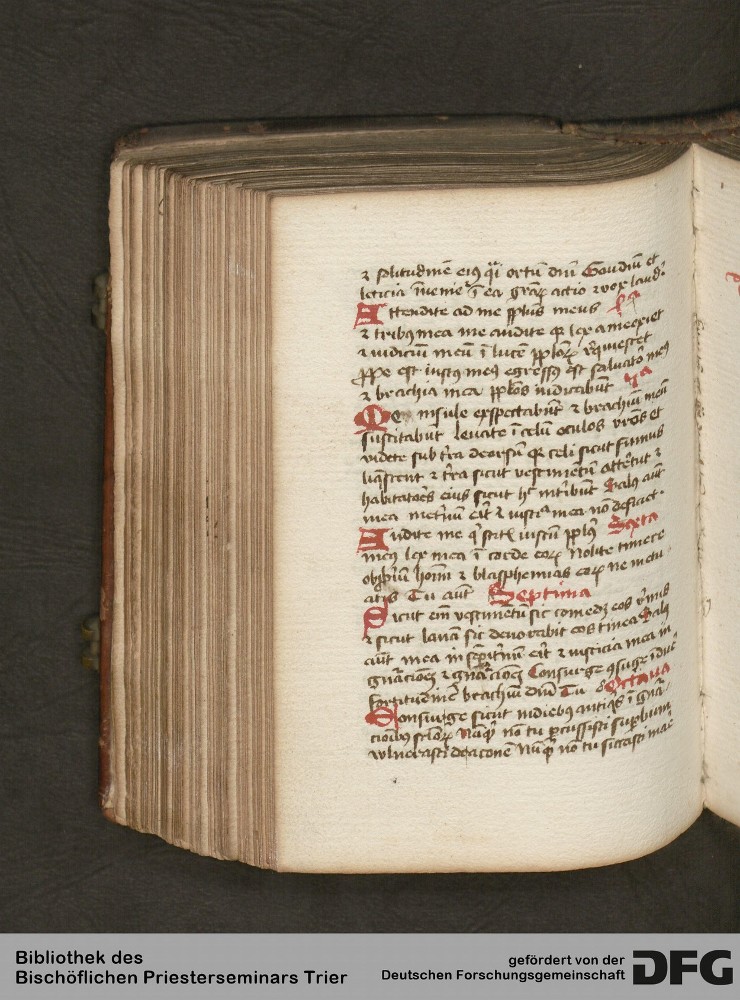 ⁊ solitudinē eiꝯ q̄i ortū dn̄i Gaudiū et
leticia īuenieᷓ ī ea gr̄aꝝ actio ⁊ vox laud'
Attendite ad me ppl̄us meus
⁊ tribꝯ mea me audite qꝛ lex a me exiet
⁊ iudiciū meū ī lucē ppl̄oꝝ reqͥuiescet
ꝓpe est iustꝯ meꝯ egressꝯ est saluatoꝛ meꝯ
⁊ brachia mea ppl̄os iudicabūt
Me insule exspectabūt ⁊ brachiū meū
sustitabūt leuate ī celū oculos vr̄os et
videte sub tr̄a deorsū qꝛ celi sicut fumus
liq̄scent ⁊ tr̄a sicut vestimētū atterēt ⁊
habitatoēs eius sicut h̄ int̄ibūt Salꝯ aūt
mea īnet̄nū eīt ⁊ iustiᷓ mea nō deficiet
Audite me q̄ scitꝭ iustū ppl̄ꝯ Sexta
meꝯ lex mea ī corde eoꝝ Nolite timere
obprobriū hoīm ⁊ blasphemias eoꝝ ne metu
atis Tu aūt Septima
Sicut em̄ vestimētū sic comedꝫ eos v̄mis
⁊ sicut lanā sic deuorabit eos tinea Salꝯ
aūt mea in semp̄it̄nū eīt ⁊ iusticia mea in
gn̄acioēs ⁊ gn̄acioēs Consurge ꝯsurge īdue
fortitudinē brachiū dn̄i Tu Octaua
Consurge sicut indiebꝯ antiqͥs ī gn̄a
cioībꝯ sc̄loꝝ Nūqͥd nō tu ꝑcussisti suꝑbum
wlnerasti draconē Nūqͥd nō tu siccasti mare
Bibliothek des
Bischöflichen Priesterseminars Trier
gefördert von der
Deutschen Forschungsgemeinschaft
DFG